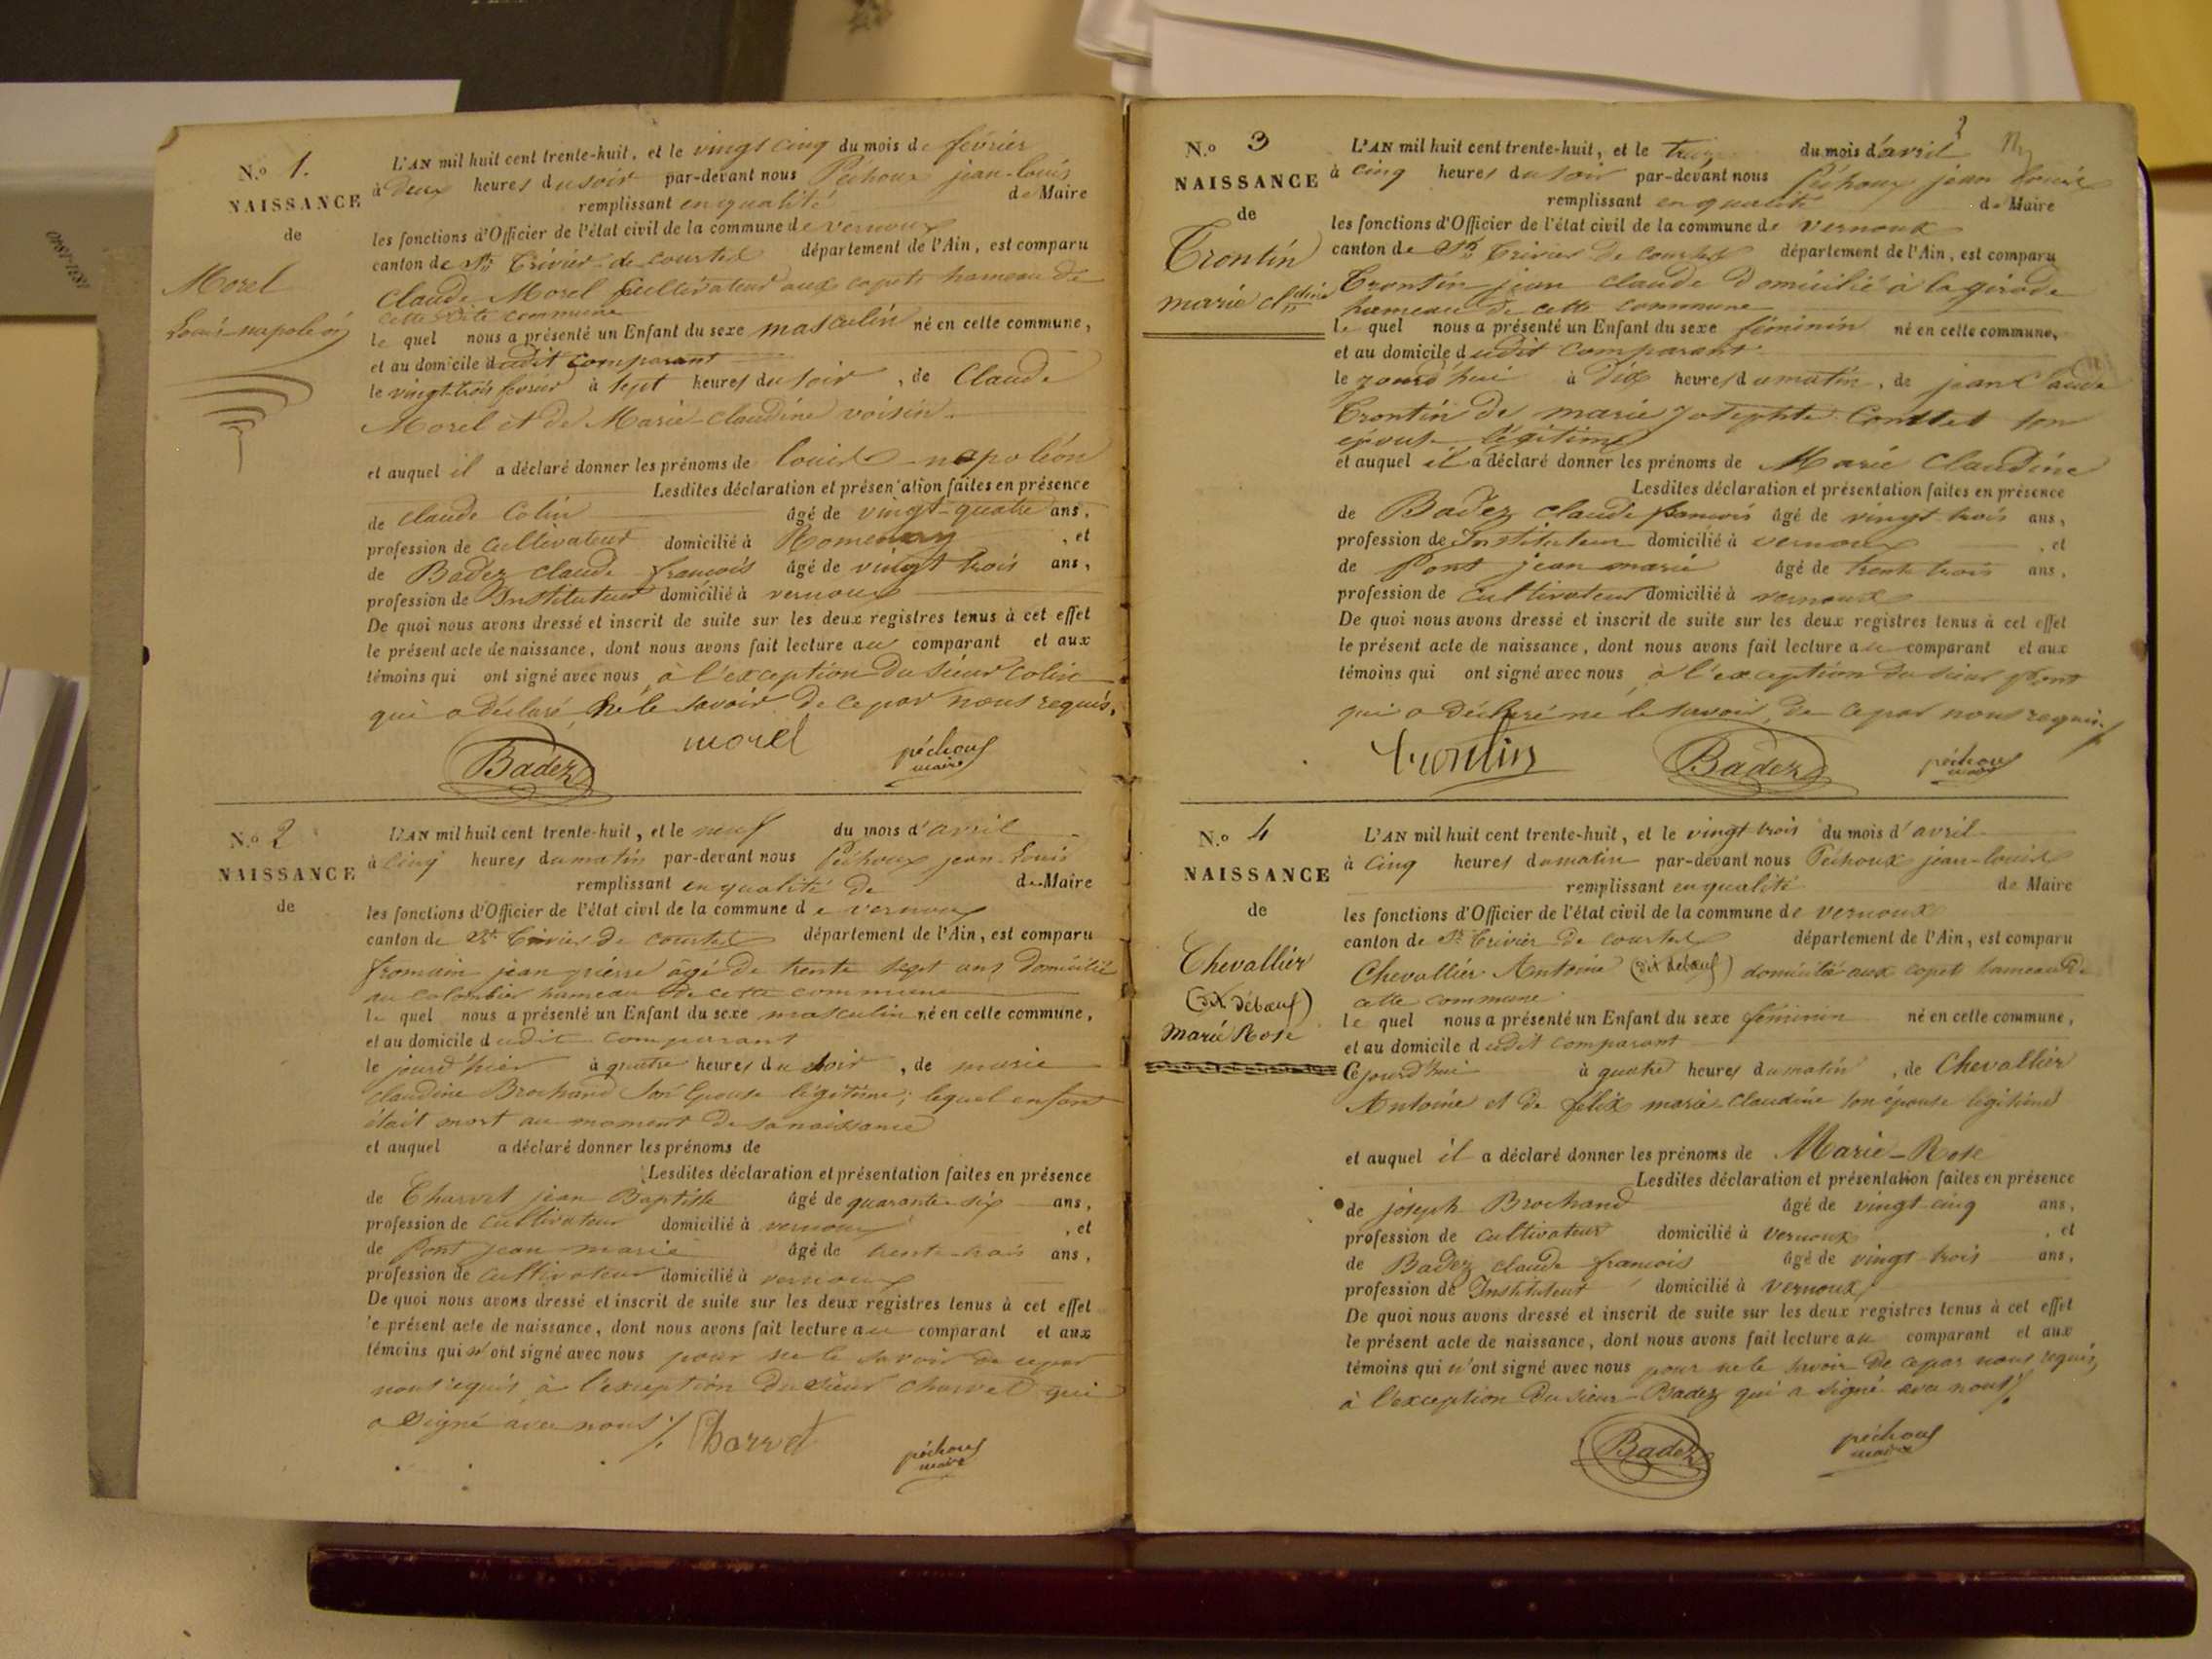 N.º 1.
NAISSANCE
de
Morel
Louis-napoléon
L'AN mil huit cent trente-huit, et le vingt cinq du mois de février
à deux heures du soir par-devant nous Péchoux jean-louis
remplissant en qualité de Maire
les fonctions d'Officier de l'état civil de la commune de vernoux
canton de St. Trivier de courtes département de l'Ain, est comparu
Claude Morel cultivateur aux copets hameau de
cette dite commune
le quel nous a présenté un Enfant du sexe masculin né en cette commune,
et au domicile dudit comparant
le vingt-trois février à sept heures du soir, de Claude
Morel et de Marie-Claudine voisin.
et auquel il a déclaré donner les prénoms de louis-napoléon
Lesdites déclaration et présentation faites en présence
de claude Colin âgé de vingt-quatre ans,
profession de cultivateur domicilié à Romenay, et
de Badez claude françois âgé de vingt trois ans,
profession de Instituteur domicilié à vernoux
De quoi nous avons dressé et inscrit de suite sur les deux registres tenus à cet effet
le présent acte de naissance, dont nous avons fait lecture au comparant et aux
témoins qui ont signé avec nous à l'exception du sieur Colin
qui a déclaré ne le savoir de ce par nous requis.
Badez morel péchoux
maire
N.º 2
NAISSANCE
de
L'AN mil huit cent trente-huit, et le neuf du mois d'avril
à cinq heures du matin par-devant nous Péchoux jean-Louis
remplissant en qualité de de Maire
les fonctions d'Officier de l'état civil de la commune de vernoux
canton de St. Trivier de courtes département de l'Ain, est comparu
fromain jean pierre âgé de trente sept ans domicilié
au colombier hameau de cette commune
le quel nous a présenté un Enfant du sexe masculin né en cette commune,
et au domicile dudit comparant
le jourd'hier à quatre heures du soir, de marie
claudine Brochand son épouse légitime; lequel enfant
était mort au moment de sa naissance
et auquel a déclaré donner les prénoms de
Lesdites déclaration et présentation faites en présence
de Charvet jean Baptiste âgé de quarante-six ans,
profession de cultivateur domicilié à vernoux, et
de Pont jean marie âgé de trente-trois ans,
profession de cultivateur domicilié à vernoux
De quoi nous avons dressé et inscrit de suite sur les deux registres tenus à cet effet
le présent acte de naissance, dont nous avons fait lecture au comparant et aux
témoins qui n'ont signé avec nous pour ne le savoir de ce par
nous requis à l'exception du sieur charvet qui
a signé avec nous /. Charvet péchoux
maire
N.º 3
NAISSANCE
de
Trontin
marie cldine
L'AN mil huit cent trente-huit, et le treize du mois d'avril
à cinq heures du soir par-devant nous Péchoux jean louis
remplissant en qualité de Maire
les fonctions d'Officier de l'état civil de la commune de vernoux
canton de St. Trivier de courtes département de l'Ain, est comparu
Trontin jean claude domicilié à la girade
hameau de cette commune
le quel nous a présenté un Enfant du sexe féminin né en cette commune,
et au domicile dudit comparant
le jourd'hui à dix heures du matin, de jean Claude
Trontin de marie josephte Conttet son
épouse légitime
et auquel il a déclaré donner les prénoms de Marie Claudine
Lesdites déclaration et présentation faites en présence
de Badez claude françois âgé de vingt-trois ans,
profession de Instituteur domicilié à vernoux, et
de Pont jean marie âgé de trente trois ans,
profession de cultivateur domicilié à vernoux
De quoi nous avons dressé et inscrit de suite sur les deux registres tenus à cet effet
le présent acte de naissance, dont nous avons fait lecture au comparant et aux
témoins qui ont signé avec nous à l'exception du sieur Pont
qui a déclaré ne le savoir, de ce par nous requis. /
trontin Badez péchoux
maire
N.º 4
NAISSANCE
de
Chevallier
(dit débœuf)
Marie Rose
L'AN mil huit cent trente-huit, et le vingt-trois du mois d'avril
à cinq heures du matin par-devant nous Péchoux jean-louis
remplissant en qualité de Maire
les fonctions d'Officier de l'état civil de la commune de vernoux
canton de St. Trivier de courtes département de l'Ain, est comparu
Chevallier Antoine (dit debœuf) domicilié aux copet hameau de
cette commune
le quel nous a présenté un Enfant du sexe féminin né en cette commune,
et au domicile dudit comparant
Cejourd'hui à quatre heures du matin, de Chevallier
Antoine et de felix marie-claudine son épouse légitime
et auquel il a déclaré donner les prénoms de Marie-Rose
Lesdites déclaration et présentation faites en présence
de joseph Brochand âgé de vingt-cinq ans,
profession de cultivateur domicilié à vernoux, et
de Badez claude françois âgé de vingt-trois ans,
profession de Instituteur domicilié à vernoux
De quoi nous avons dressé et inscrit de suite sur les deux registres tenus à cet effet
le présent acte de naissance, dont nous avons fait lecture au comparant et aux
témoins qui n'ont signé avec nous pour ne le savoir de ce par nous requis,
à l'exception du sieur Badez qui a signé avec nous /.
Badez péchoux
maire